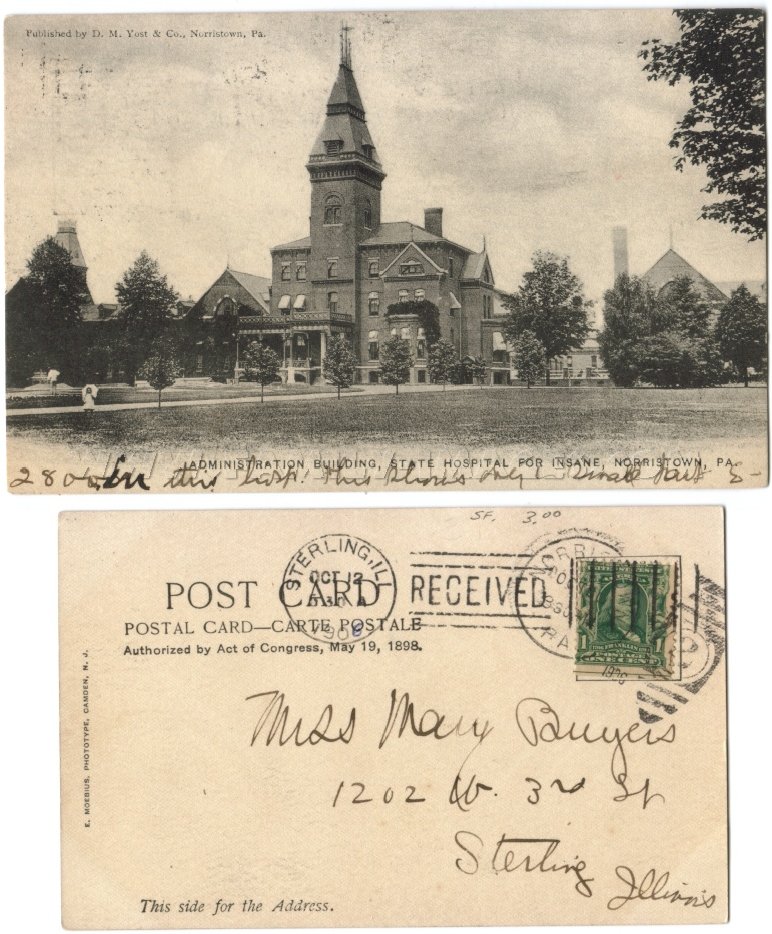 Published by D. M. Yost & Co., Norristown, Pa.
ADMINISTRATION BUILDING, STATE HOSPITAL FOR INSANE, NORRISTOWN, PA.
2800 in this hosp. this shows only 1 small part
SF. 3.00
STERLING, ILL.
OCT 12
530 A
1906
RECEIVED
NORRIS
830
PA.
1906
2
1
FRANKLIN
POSTAGE
ONE CENT
POST CARD
POSTAL CARD—CARTE POSTALE
Authorized by Act of Congress, May 19, 1898.
E. MOEBIUS, PHOTOTYPE, CAMDEN, N. J.
Miss Mary Buyers
1202 W. 3rd St
Sterling
Illinois
This side for the Address.